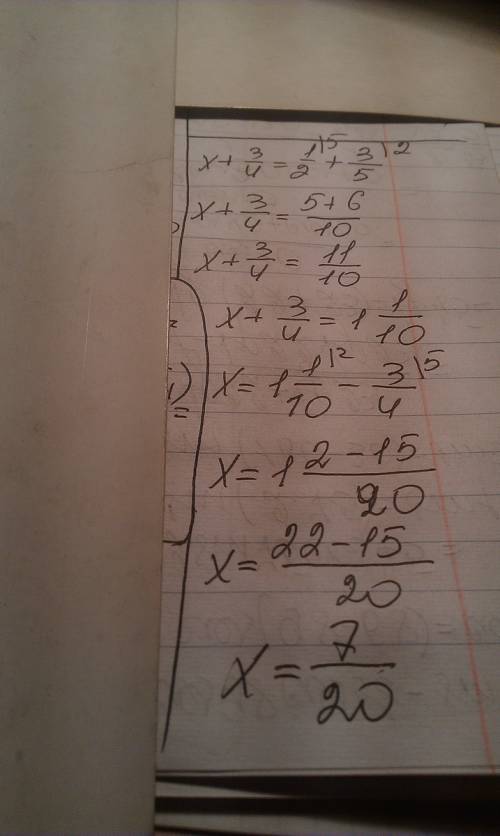 x + 3/4 = 1/2 \5 + 3/5 \2
x + 3/4 = 5+6/10
x + 3/4 = 11/10
x + 3/4 = 1 1/10
x = 1 1/10 \2 - 3/4 \5
x = 1 2-15/20
x = 22-15/20
x = 7/20